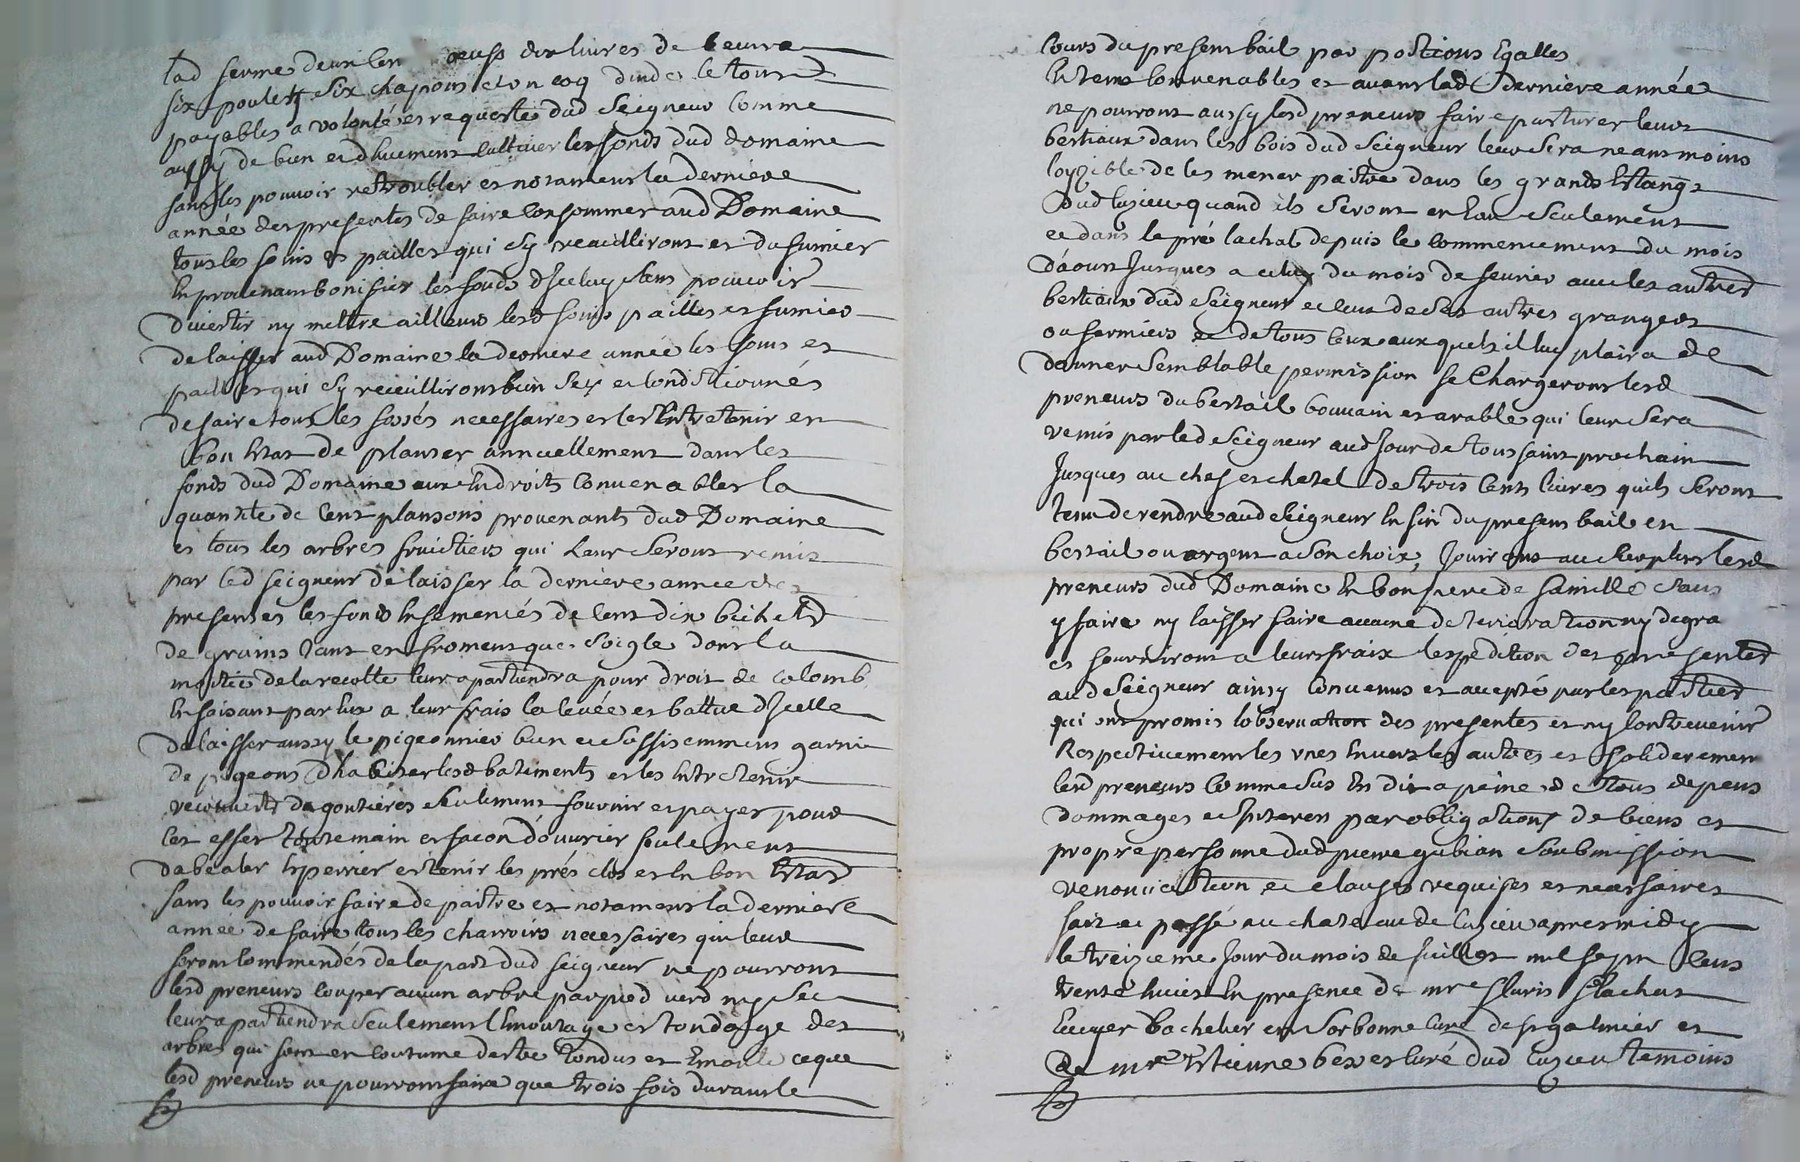 lad ferme deux cen oeufs dix livres de beurre
six pouletz six chapons et un coq dinde le tout
payables a volonté et requeste dud Seigneur comme
aussy de bien et dhuement cultiver les fonds dud domaine
sans les pouvoir retroubler et notament la derniere
année des presentes de faire consommer aud Domaine
tous les foins et pailles qui sy recuilliront et du fumier
en provenant bonifier les fonds dicelluy sans pouvoir
divertir ny mettre ailleurs lesd foins pailles et fumier
de laisser aud Domaine la derniere année les foins et
pailles qui sy recieuilliront bien secz et conditionnés
de faire tous les fossés necessaires et les Entretenir en
bon Estat de planter annuellement dans les
fonds dud Domaine aux Endroits convenables la
quantité de cent plansons provenants dud Domaine
et tous les arbres fruictiers qui leur seront remis
par led seigneur de laisser la derniere année des
presentes les fonds Ensemencés de cent dix bichetz
de grains tant en froment que soigle dont la
moitié de la recolte leur apartiendra pour droit de colomb
En faisant par Eux a leur frais la levée et battue dicelle
de laisser aussy le pigeonnier bien et suffisemment garni
de pigeons d'habiter lesd batiments et les Entretenir
recouverts de goutieres seulement fournir et payer pour
cet effet toute main et facon d'ouvrier seulement
et tenir les prés clos et En bon Estat
sans les pouvoir faire depaitre et notament la derniere
année de faire tous les charroirs necessaires qui leur
seront commendés de la part dud seigneur ne pourront
lesd preneurs couper aucun arbre par pied verd ny sec
leur apartiendra seulement l'Emoutage et tondage des
arbres qui sont en coutume destre tondus et Emoute ce que
lesd preneurs ne pourront faire que trois fois durant le
cours du present bail par portions Egalles
En tems convenables et avant lad derniere année
ne pourront aussy lesd preneurs faire pasturer leurs
bestiaux dans les bois dud Seigneur leur sera neantmoins
loysible de les mener paitre dans les grands Estangs
Dud luzieu quand ils seront en eau seulement
et dans le pré lachat depuis le commencement du mois
d'aoust Jusques a celuy du mois de fevrier avec les autres
bestiaux dud Seigneur et ceux de ses autres grangers
ou fermiers et de tous ceux auxquels il luy plaira de
donner semblable permission se Chargeront lesd
preneurs du bestail bouvain et arable qui leur sera
remis par led Seigneur aud Jour de toussaint prochain
Jusques au chef et chetel de trois cents livres quils seront
tenu de rendre aud Seigneur En fin du present bail en
bestail ou argent a son choix, Jouiront au surplus lesd
preneurs dud Domaine En bon pere de famille sans
y faire ny laisser faire aucune deterioration ny degra
et fourniront a leurs fraix lexpedition des presentes
aud Seigneur ainsy convenus et accepté par les parties
qui ont promis lobservation des presentes et ny contrevenir
Respectivement les unes Envers les autres et soliderement
lesd preneurs comme sus En dit a peine de tous depens
dommages et Interets par obligations de biens et
propre personne dud pierre gubian soubmission
renonciation et clauses requises et necessaires
fait et passé au chateau de luzieu apres midy
le treizieme Jour du mois de juillet mil sept cens
trente huict En presence de mre Floris Flachat
Ecuyer bachelier en sorbonne curé de st galmier et
De mre Estienne curé dud luzieu temoins